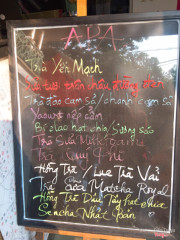 APA
Trà Yến Mạch
Sữa tươi trân châu đường đen
Trà đào cam sả / chanh cam sả
Yaourt nếp cẩm
Bí đao hạt chia / sương sáo
Trà Sữa Milk
Hồng Trà / Lục Trà Vải
Trà Sữa Matcha Royal
Hồng Trà Dâu Tây hạt chia
Sencha Nhật Bản